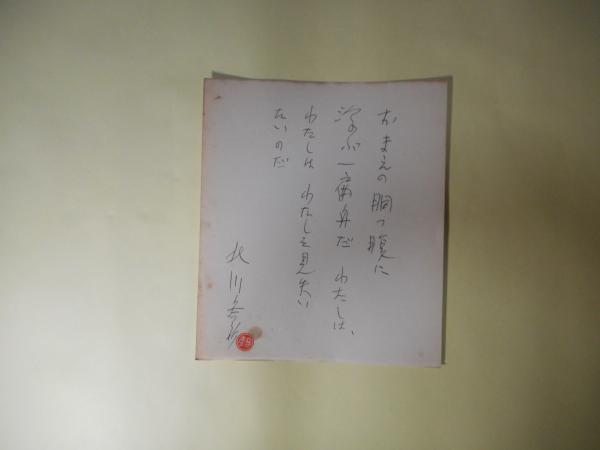 おまえの胴っ腹に
浮ぶ一扁舟だ わたしは、
わたしは わたしを見失い
たいのだ
北川冬彦